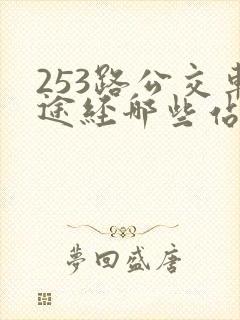 253路公交車
途經哪些佔
夢回盛唐